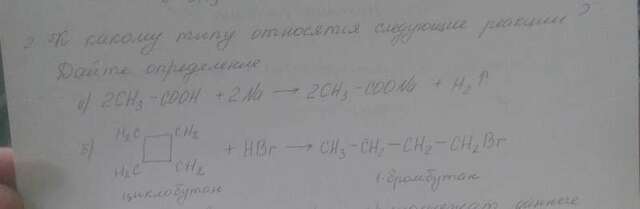 2 К какому типу относятся следующие реакции?
Дайте определение
а) 2CH₃-COOH + 2Na → 2CH₃-COONa + H₂↑
H₂C CH₂
б) + HBr → CH₃-CH₂-CH₂-CH₂Br
H₂C CH₂
циклобутан 1-бромбутан
данные